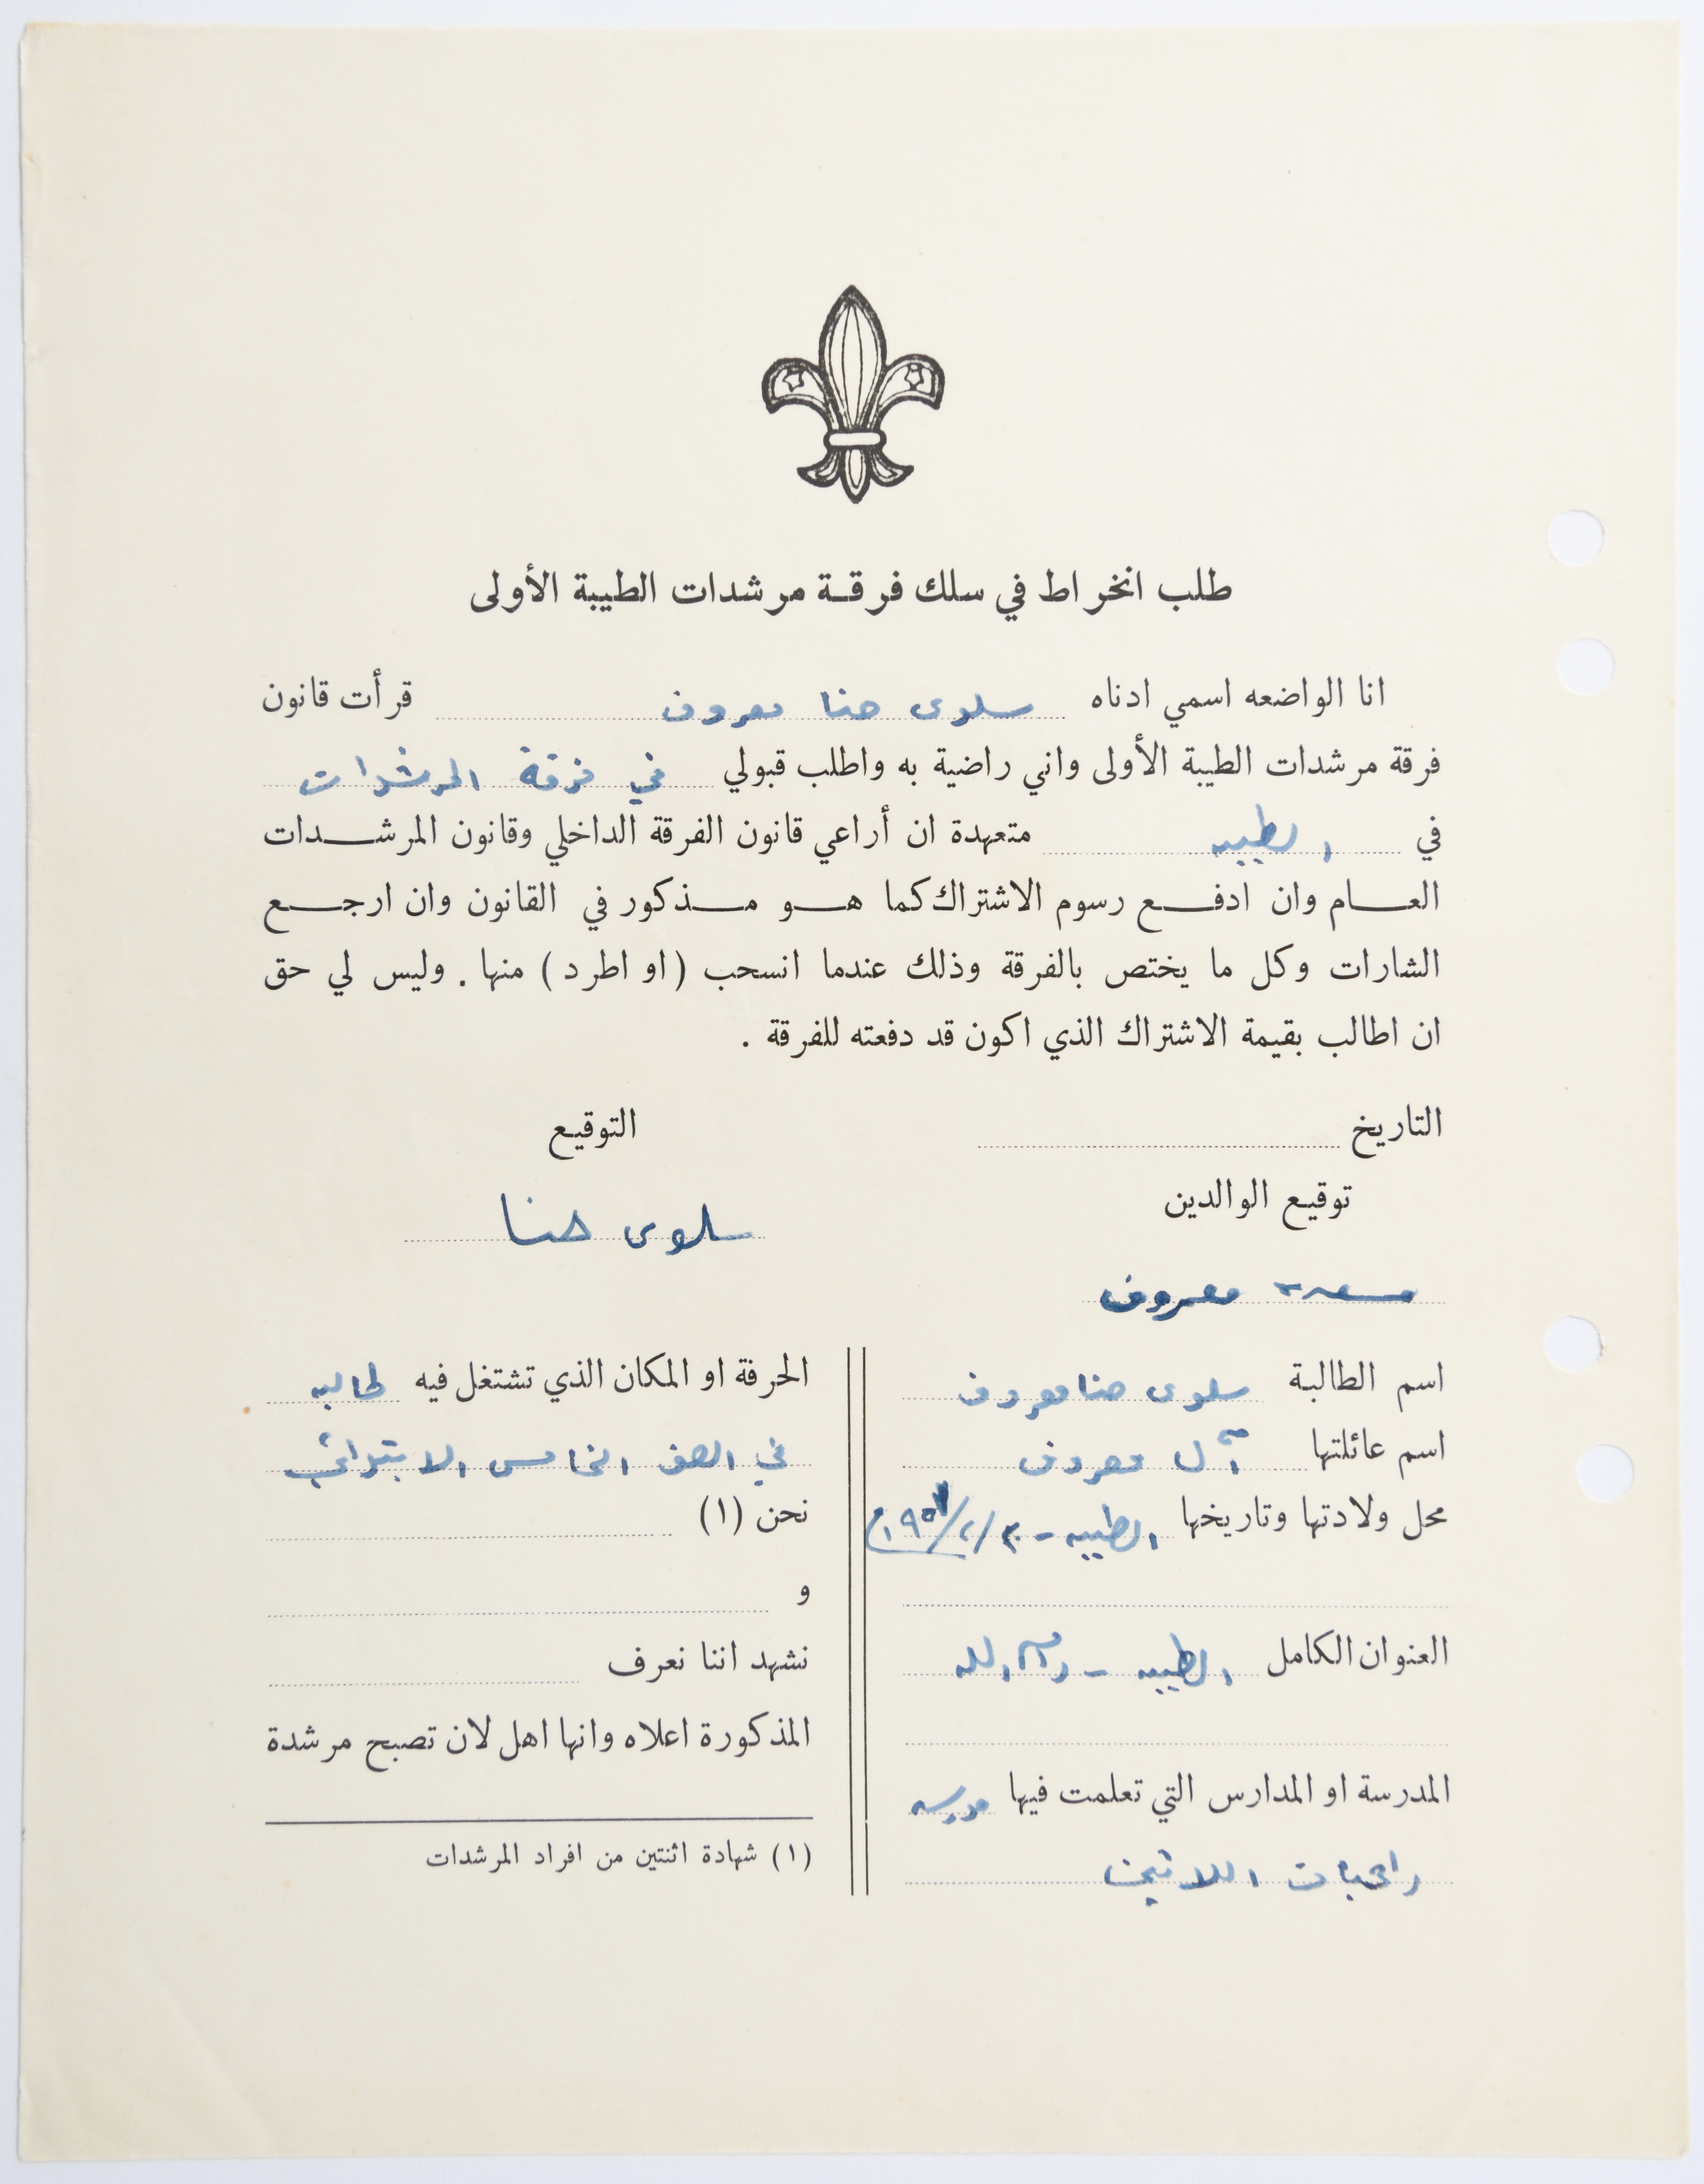 طلب انخراط في سلك فرقة مرشدات الطيبة الأولى
انا الواضعه اسمي ادناه سلوى حنا معروف قرأت قانون
فرقة مرشدات الطيبة الأولى واني راضية به واطلب قبولي في فرقة المرشدات
في الطيبه متعهدة ان أراعي قانون الفرقة الداخلي وقانون المرشدات
العام وان ادفع رسوم الاشتراك كما هو مذكور في القانون وان ارجع
الشارات وكل ما يختص بالفرقة وذلك عندما انسحب (او اطرد) منها . وليس لي حق
ان اطالب بقيمة الاشتراك الذي اكون قد دفعته للفرقة .
التاريخ
التوقيع
سلوى حنا
توقيع الوالدين
معروف
اسم الطالبة سلوى حنا معروف
اسم عائلتها آل معروف
محل ولادتها وتاريخها الطيبه -
العنوان الكامل الطيبه - رام الله
المدرسة او المدارس التي تعلمت فيها مدرسه
راهبات اللاتين
الحرفة او المكان الذي تشتغل فيه طالبه
في الصف الخامس الابتدائي
نحن (١)
و
نشهد اننا نعرف
المذكورة اعلاه وانها اهل لان تصبح مرشدة
(١) شهادة اثنتين من افراد المرشدات